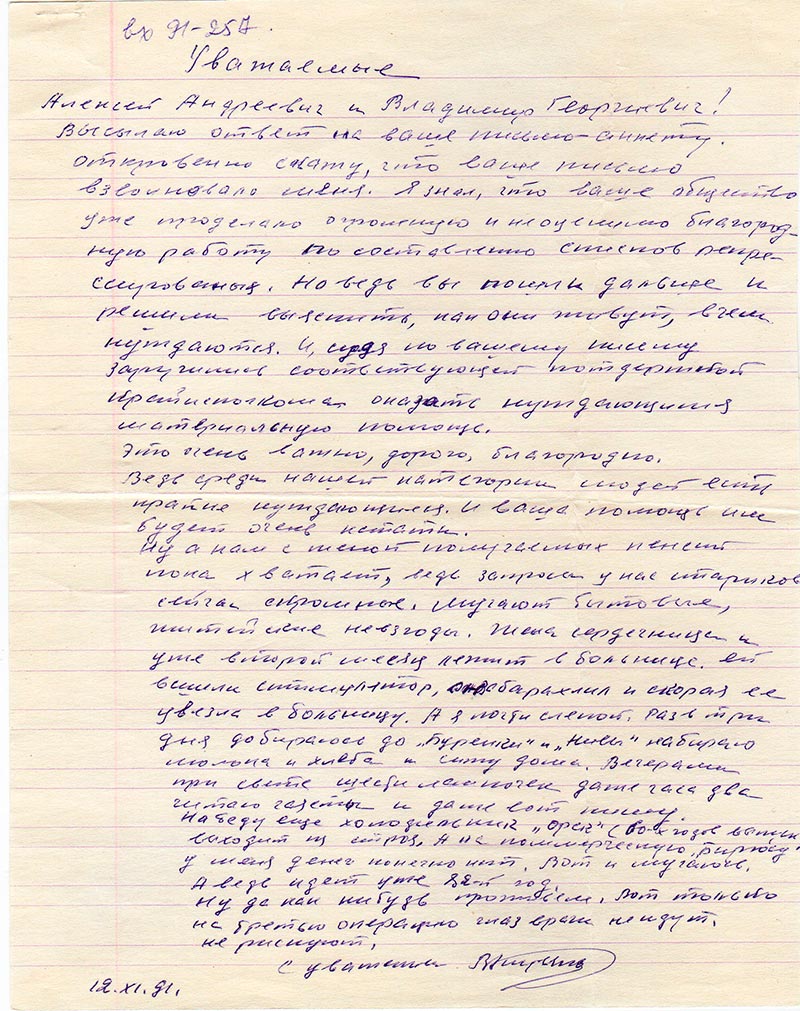 вх 91-257.
Уважаемые
Алексей Андреевич и Владимир Георгиевич!
Высылаю ответ на ваше письмо-анкету.
откровенно скажу, что ваше письмо
взволновало меня. Я знал, что ваше общество
уже проделало огромную и неоценимо благород-
ную работу по составлению списков репре-
сированых. Но ведь вы пошли дальше и
решили выяснить, как они живут, в чем
нуждаются. И, судя по вашему письму
заручились соотвствующей потдержкой
крайисполкома оказать нуждающимся
материальную помощь.
Это очень важно, дорого, благородно.
Ведь среди нашей категории людей есть
крайне нуждающиеся. И ваша помощь им
будет очень кстати.
Ну а нам с женой получаемых пенсий
пока хватает, ведь запросы у нас стариков
сейчас скромные. Мучают бытовые,
житейские невзгоды. Жена сердечница и
уже второй месяц лежит в больнице. Ей
вшили стимулятор, забарахлил и скорая ее
увезла в больницу. А я почти слепой. Раз в три
дня добираюсь до „Буренки" и „Нивы" набираю
молока и хлеба и сижу дома. Вечерами
при свете шести лампочек даже часа два
читаю газеты и даже вот пишу.
На беду еще холодильник „Орск" ( годов выпуск
выходит из строя. А на коммерческую „Бирюсу"
у меня денег конечно нет. Вот и мучаюсь.
А ведь идет уже год.
Ну да как нибудь проживем. Вот только
на третью операцию глаз врачи не идут.
не рискуют.
С уважением
12.XI.91.